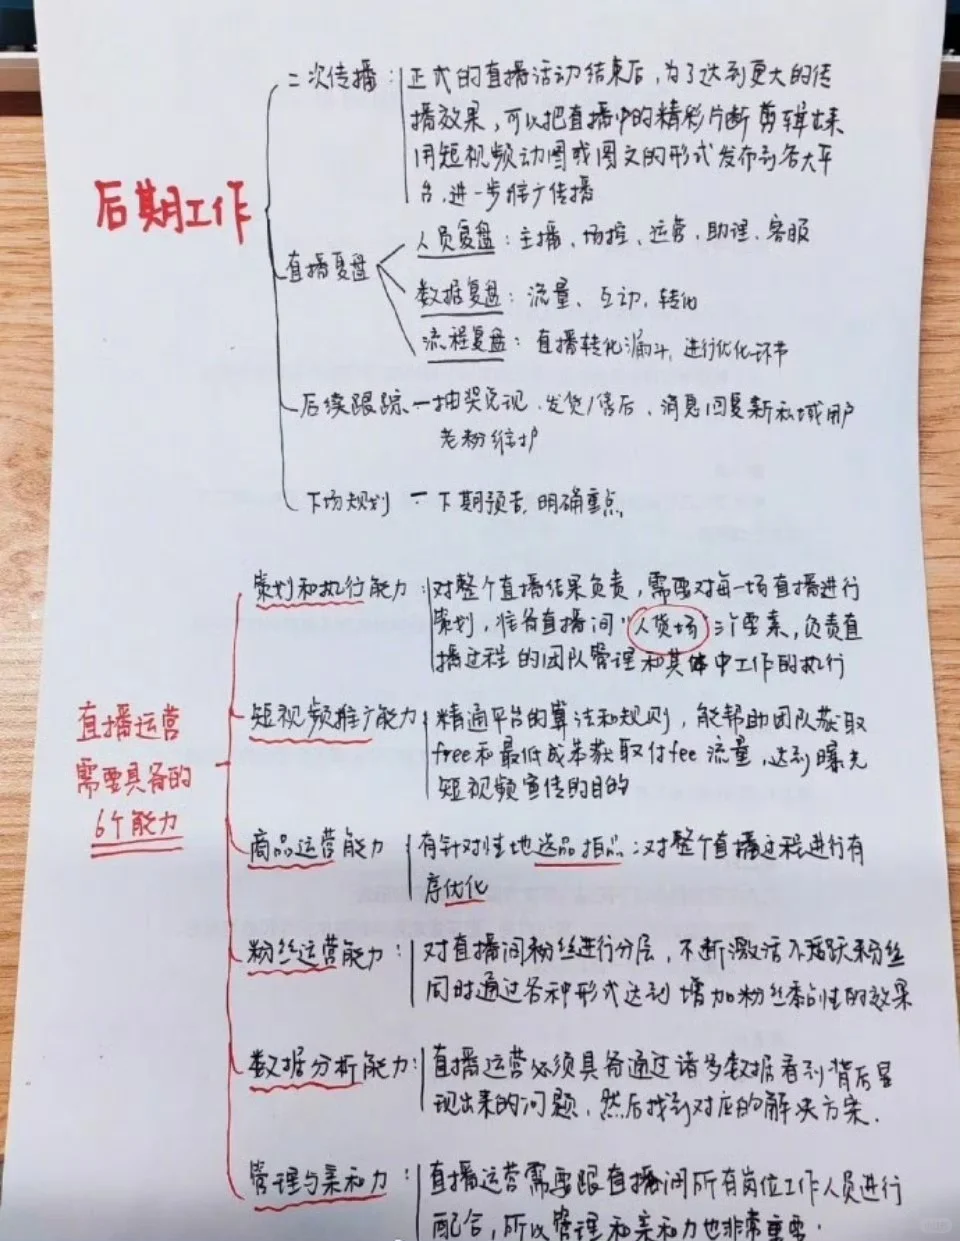 后期工作
二次传播：正式的直播活动结束后，为了达到更大的传
播效果，可以把直播中的精彩片断剪辑出来
用短视频动图或图文的形式发布到各大平
台，进一步推广传播
直播复盘
人员复盘：主播、场控、运营、助理、客服
数据复盘：流量、互动、转化
流程复盘：直播转化漏斗，进行优化环节
后续跟踪—抽奖兑现、发货/售后、消息回复新私域用户
老粉维护
下场规划—下期预告，明确重点
直播运营
需要具备的
6个能力
策划和执行能力：对整个直播结果负责，需要对每一场直播进行
策划，准备直播间"人货场"三个要素，负责直
播过程的团队管理和具体中工作的执行
短视频推广能力 精通平台的算法和规则，能帮助团队获取
free和最低成本获取付fee流量，达到曝光
短视频宣传的目的
商品运营能力 有针对性地选品排品：对整个直播过程进行有
序优化
粉丝运营能力：对直播间粉丝进行分层，不断激活不活跃粉丝
同时通过各种形式达到增加粉丝黏性的效果
数据分析能力：直播运营必须具备通过诸多数据看到背后呈
现出来的问题，然后找到对应的解决方案.
管理与亲和力：直播运营需要跟直播间所有岗位工作人员进行
配合，所以管理和亲和力也非常重要.